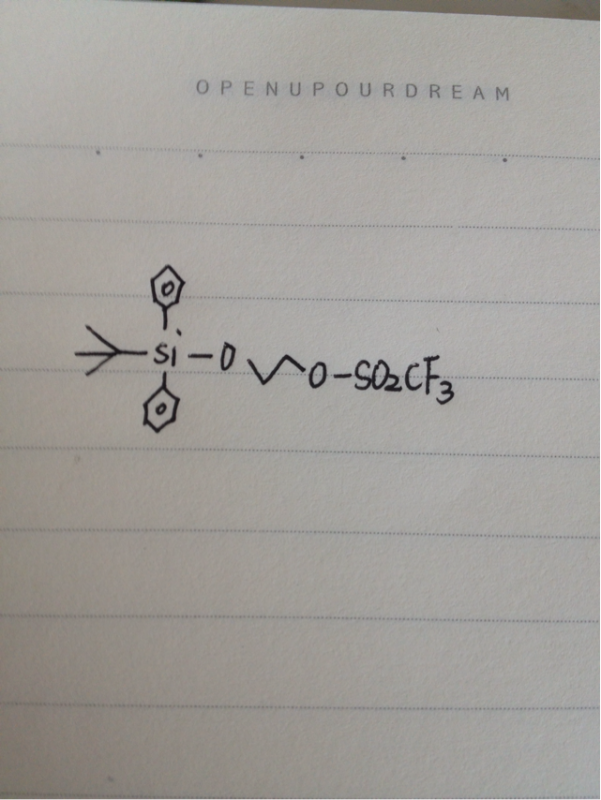 OPENUPOURDREAM
Si-O O-SO₂CF₃